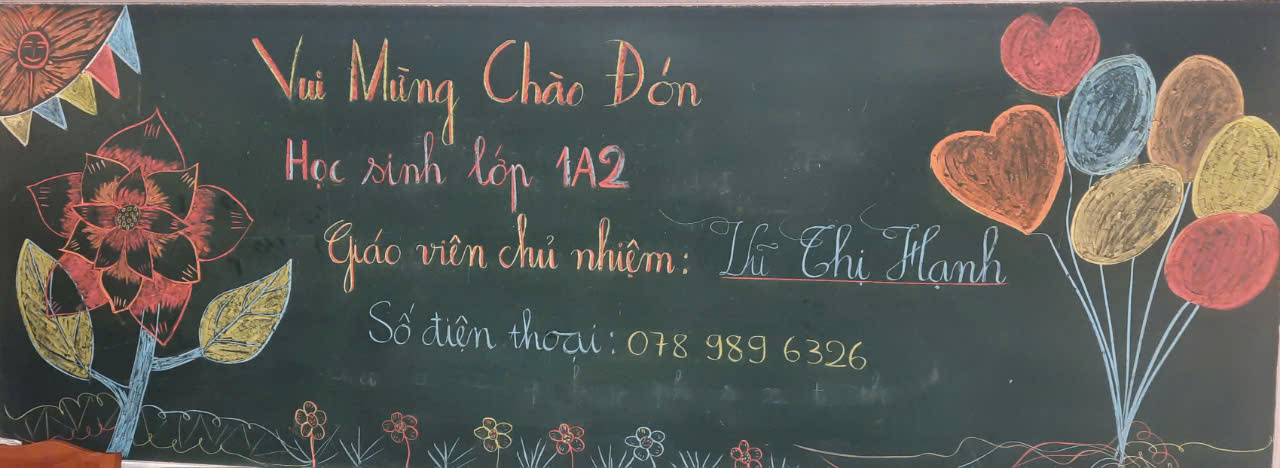 Vui Mừng Chào Đón
Học sinh lớp 1A2
Giáo viên chủ nhiệm: Vũ Thị Hạnh
Số điện thoại: 078 989 6326